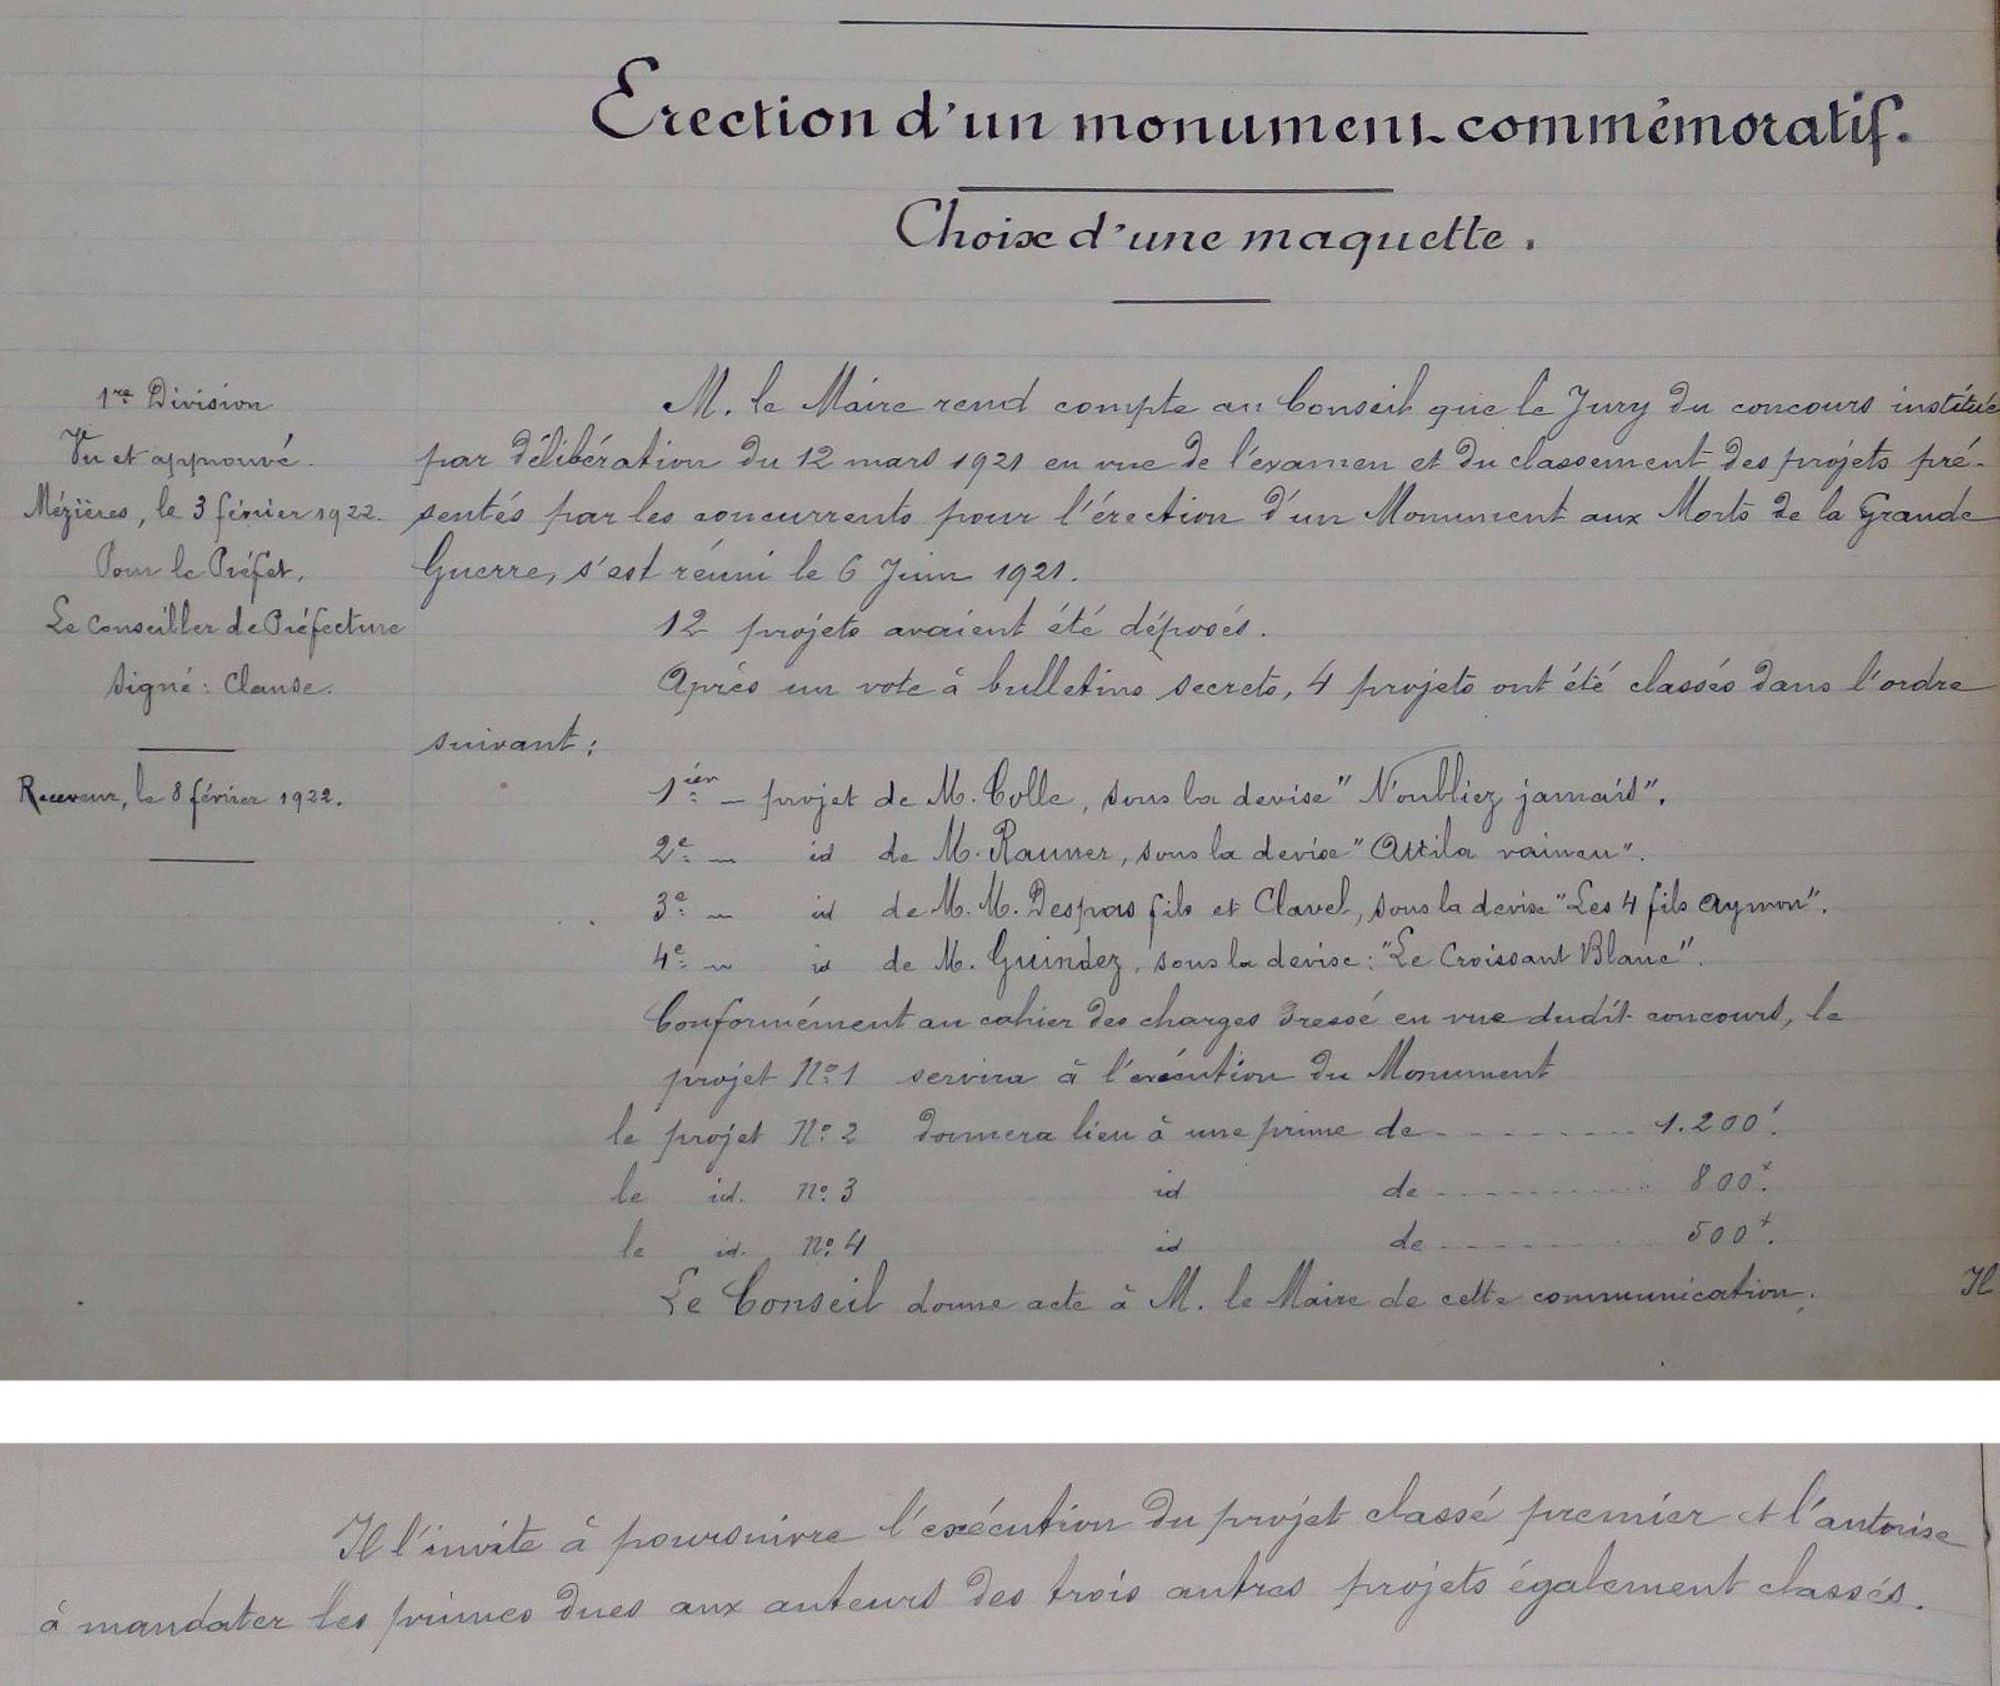 Erection d'un monument commémoratif.
Choix d'une maquette.
1re Division
Vu et approuvé.
Mézières, le 3 février 1922.
Pour le Préfet,
Le Conseiller de Préfecture
Signé: Clause.
Receveur, le 8 février 1922.
M. le Maire rend compte au Conseil que le Jury du concours institué
par délibération du 12 mars 1921 en vue de l'examen et du classement des projets pré-
sentés par les concurrents pour l'érection d'un Monument aux Morts de la Grande
Guerre, s'est réuni le 6 Juin 1921.
12 projets avaient été déposés.
Après un vote à bulletins secrets, 4 projets ont été classés dans l'ordre
suivant:
1ier — projet de M. Colle, sous la devise "N'oubliez jamais".
2e — id de M. Rauner, sous la devise "Attila vaincu".
3e — id de M. M. Despas fils et Clavel, sous la devise "Les 4 fils Aymon".
4e — id de M. Guindez, sous la devise: "Le Croissant Blanc".
Conformément au cahier des charges dressé en vue dudit concours, le
projet No 1 servira à l'exécution du Monument
le projet No 2 donnera lieu à une prime de 1.200f.
le id. no 3 id de 800f.
le id. no 4 id de 500f.
Le Conseil donne acte à M. le Maire de cette communication. Il
Il l'invite à poursuivre l'exécution du projet classé premier et l'autorise
à mandater les primes dues aux auteurs des trois autres projets également classés.